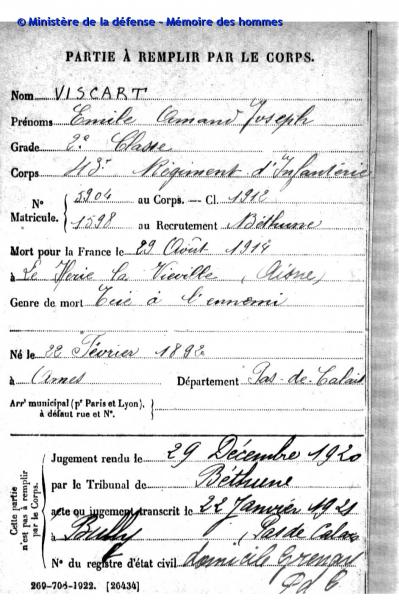 © Ministère de la défense - Mémoire des hommes
PARTIE À REMPLIR PAR LE CORPS.
Nom VISCART
Prénoms Emile Amand Joseph
Grade 2e Classe
Corps 43e Régiment d'Infanterie
N° Matricule. { 5904 au Corps. — Cl. 1912
1598 au Recrutement Béthune
Mort pour la France le 29 Août 1914
à Le Herie La Vieville, (Aisne)
Genre de mort Tué à l'ennemi
Né le 22 Février 1892
à Ames Département Pas-de-Calais
Arrt municipal (pr Paris et Lyon), à défaut rue et N°.
Cette partie n'est pas à remplir par le Corps.
Jugement rendu le 29 Décembre 1920
par le Tribunal de Béthune
acte ou jugement transcrit le 22 Janvier 1921
à Bully (Pas de Calais
N° du registre d'état civil domicile Grenay
P d C
269-708-1922. [26434]